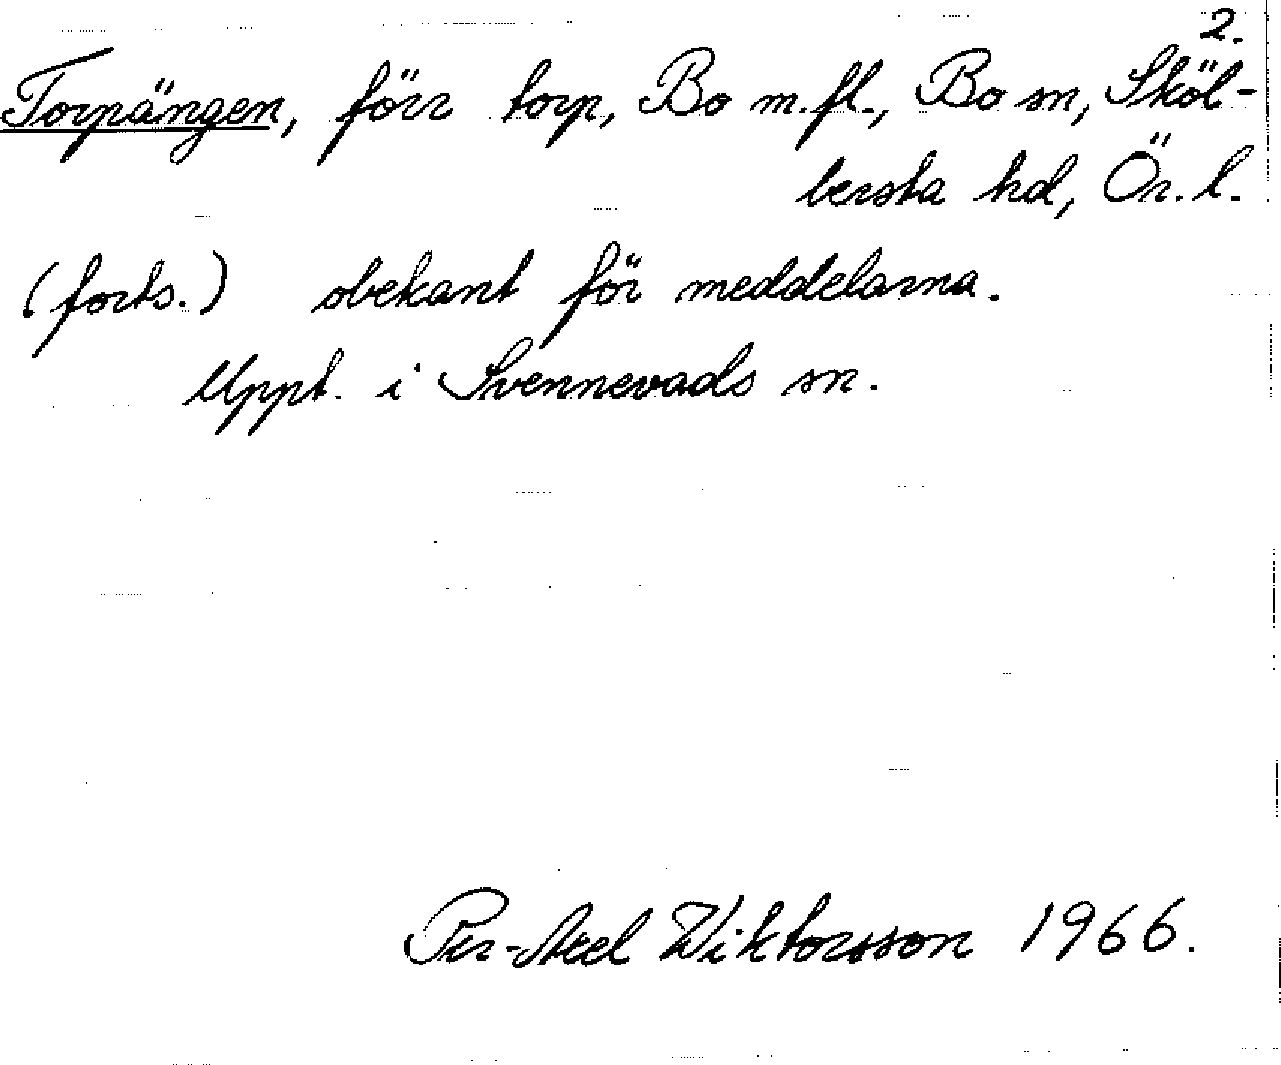 2.
Torpängen, förr torp, Bo m.fl., Bo sn, Sköl-
bersta hd, Ör. l.
(forts.) obekant för meddelarna.
Uppt. i Svennevads sn.
Per-Axel Wiktorsson 1966.